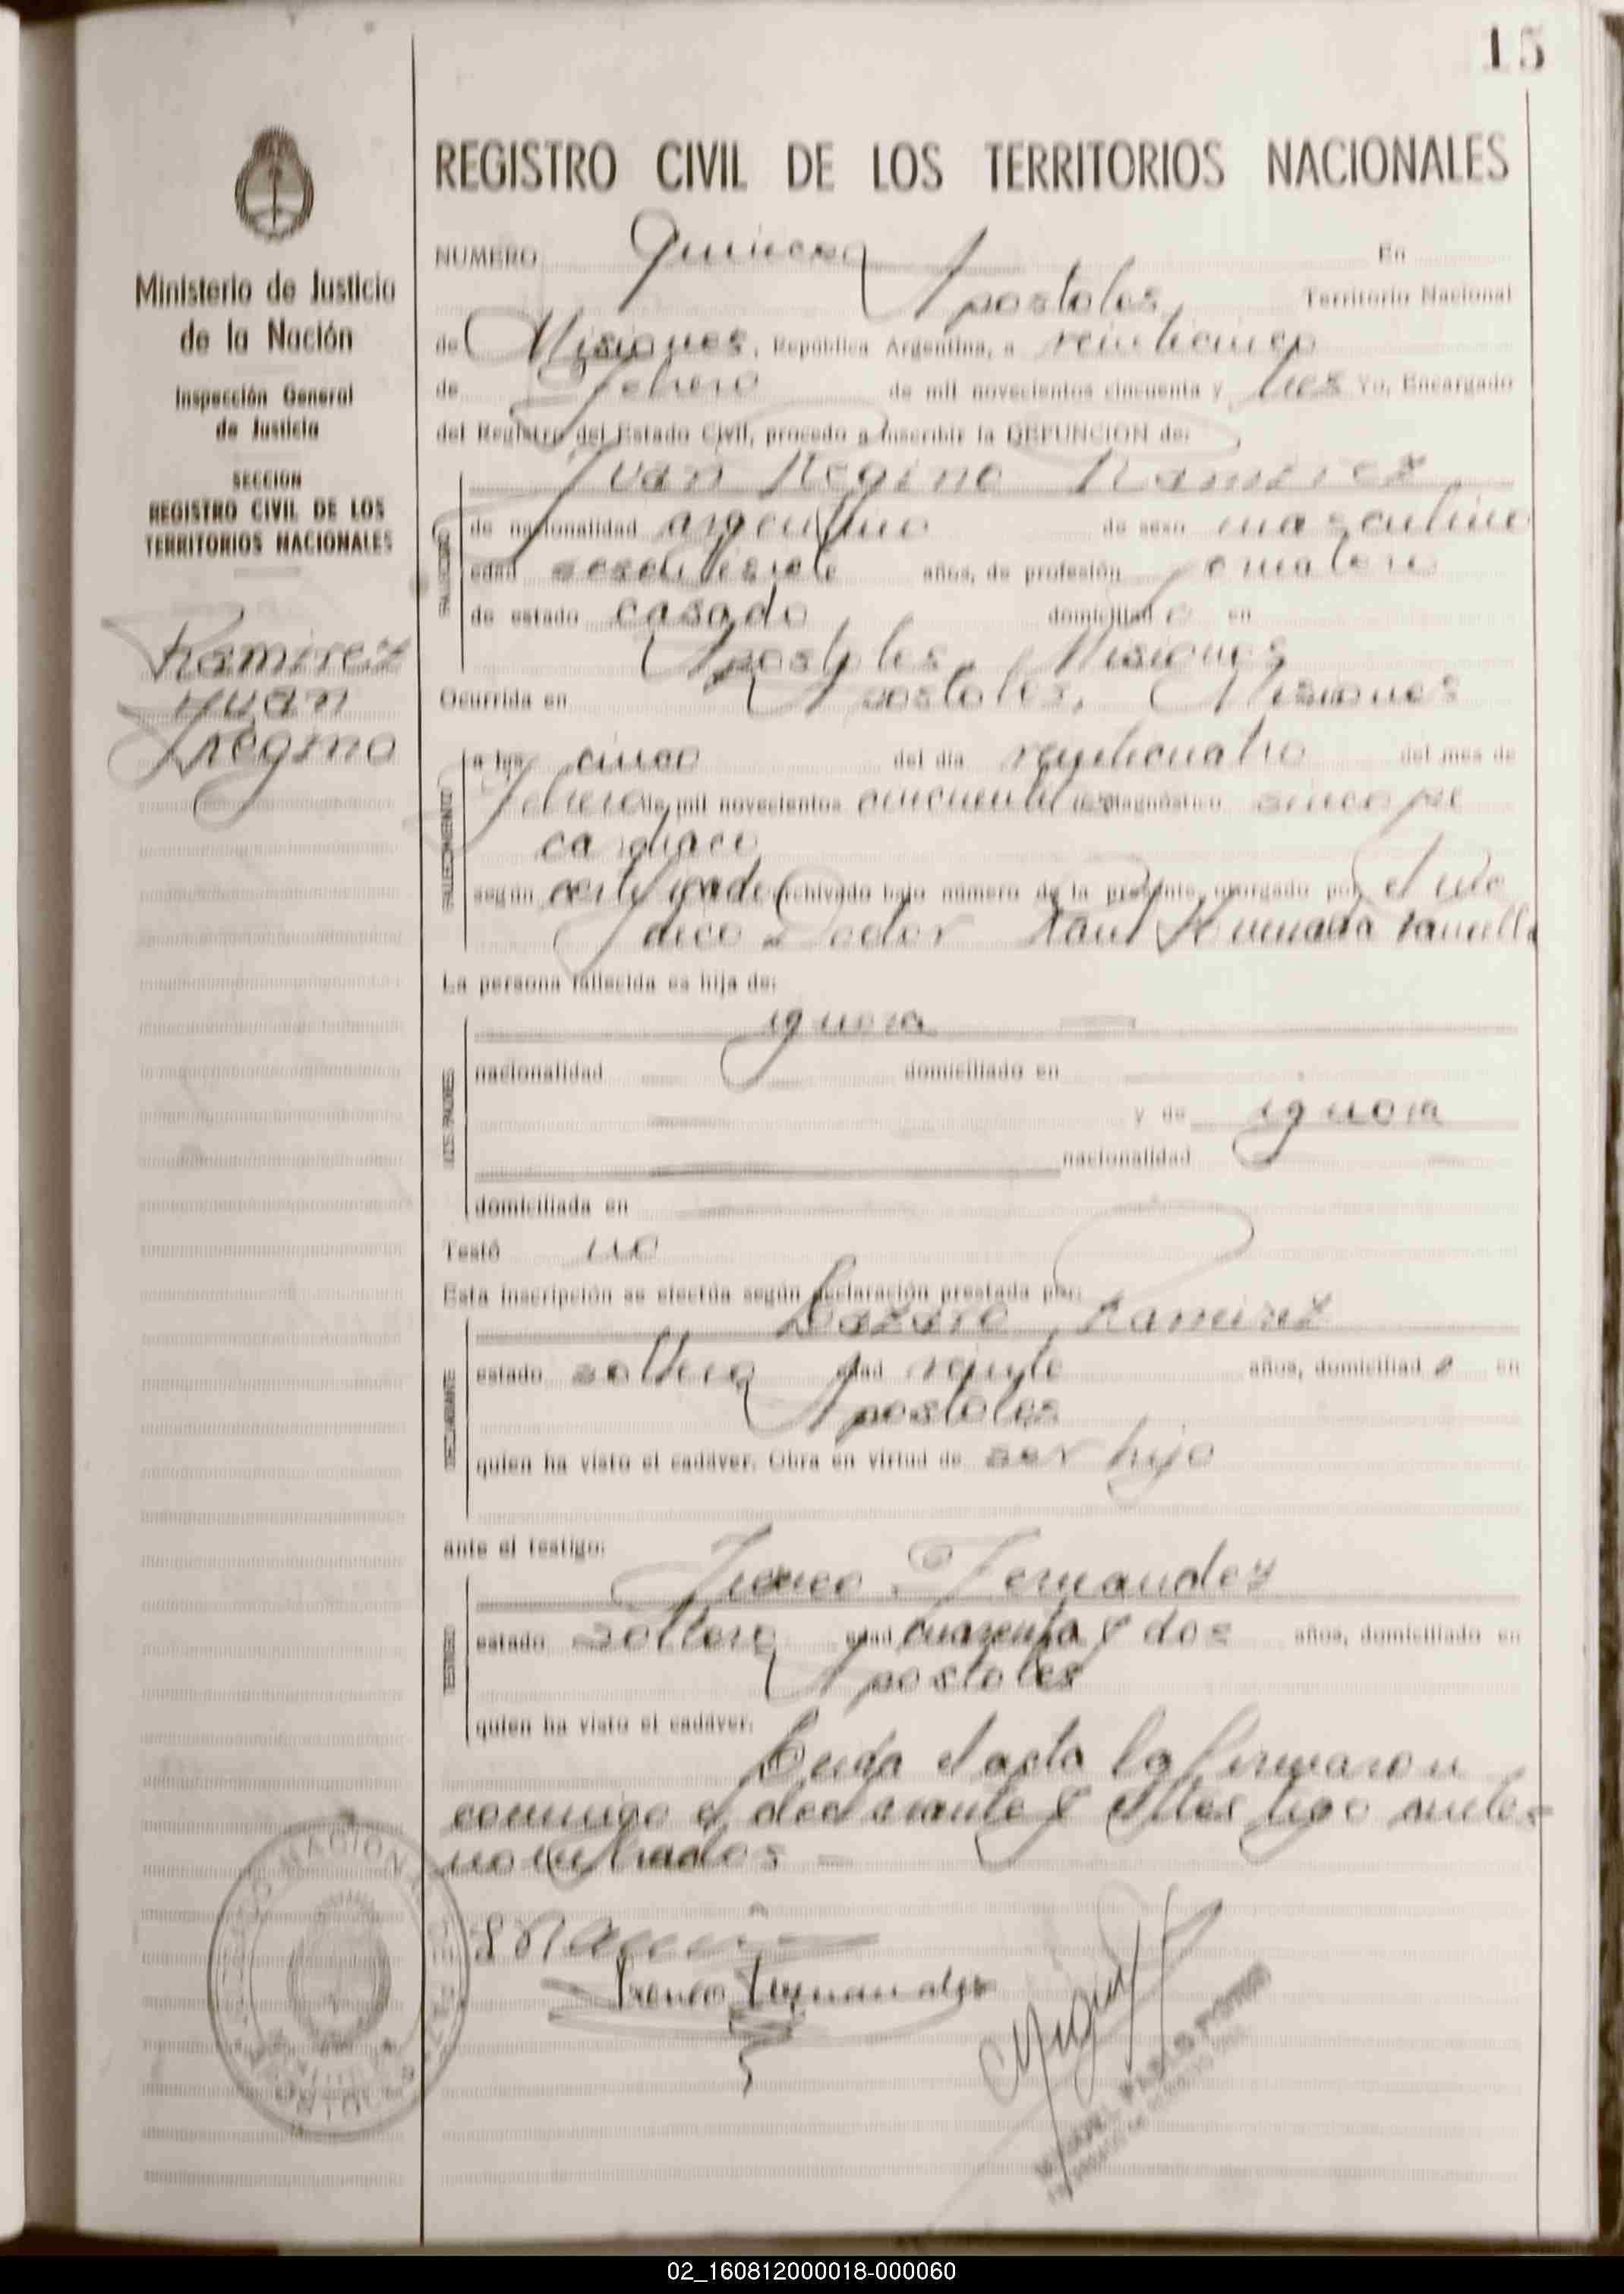 15
REGISTRO CIVIL DE LOS TERRITORIOS NACIONALES
Ministerio de Justicia
de la Nación
Inspección General
de Justicia
SECCION
REGISTRO CIVIL DE LOS
TERRITORIOS NACIONALES
Ramirez
Juan
Regino
NUMERO Quince En
Apostoles, Territorio Nacional
de Misiones, República Argentina, a veinticinco
de Febrero de mil novecientos cincuenta y tres Yo, Encargado
del Registro del Estado Civil, procedo a inscribir la DEFUNCION de:
Juan Regino Ramirez
de nacionalidad argentino de sexo masculino
edad sesentisiete años, de profesión jornalero
de estado casado domiciliado en
Apostoles, Misiones
Ocurrida en Apostoles, Misiones
FALLECIMIENTO
a las cinco del día veinticuatro del mes de
Febrero de mil novecientos cincuentitres diagnóstico sincope
cardiaco
según certificado archivado bajo número de la presente, otorgado por el mé
dico Doctor Raul
La persona fallecida es hija de:
SUS PADRES
ignora
nacionalidad domiciliado en
y de ignora
nacionalidad
domiciliada en
Testó no
Esta inscripción se efectúa según declaración prestada por:
DECLARANTE
Lazaro Ramirez
estado soltero edad veinte años, domiciliado en
Apostoles
quien ha visto el cadáver. Obra en virtud de ser hijo
ante el testigo:
TESTIGO
Ireneo Fernandez
estado soltero edad cuarenta y dos años, domiciliado en
Apostoles
quien ha visto el cadáver.
Leida el acta la firmaron
conmigo el declarante y el testigo antes
nombrados -
Ireneo Fernandez
02_160812000018-000060